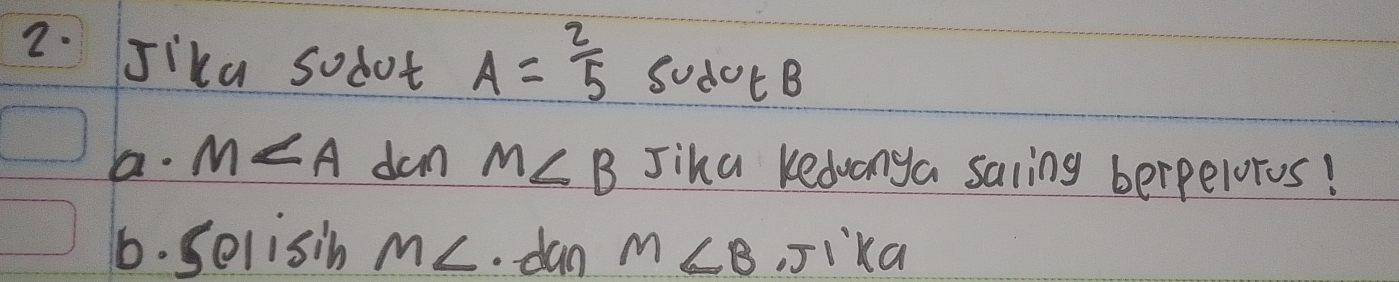 2. Jika sudut A = 2/5 sudut B
a. M<A dan M∠B Jika keduanya saling berpelurus!
b. Selisih M∠. dan M∠B, Jika